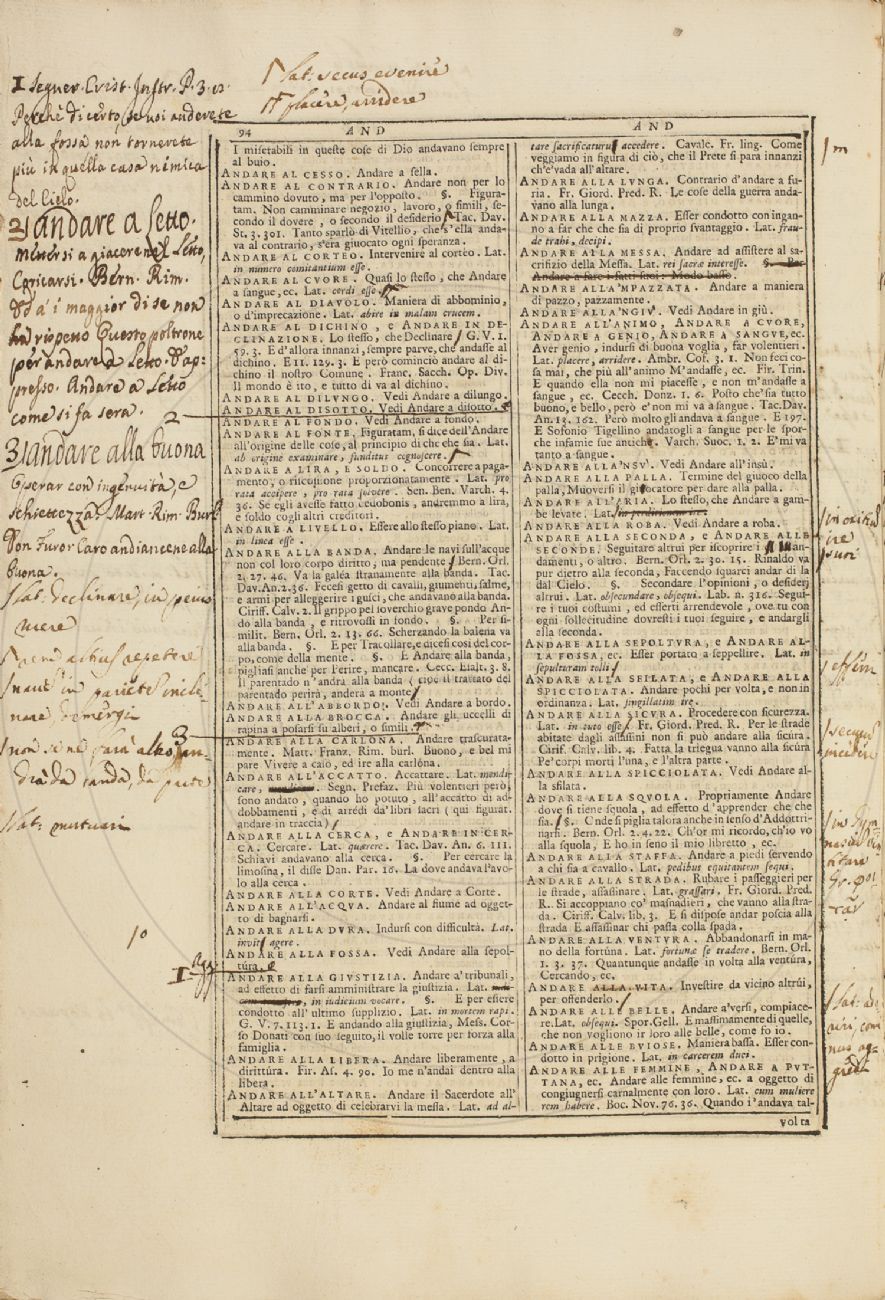 1 Segner. Crist. Instr. P. 3.
Perchè di certo, se voi anderete
alla fossa non tornerete
più in quella casa nemica
del Cielo.
Lat. secus evenire
placere, arridere
3) andare a letto.
Mettersi a giacere nel letto,
Coricarsi. Bern. Rim.
Ed a' i maggior di se non
ha rispetto Questo poltrone
per andare a letto. E ap-
presso. Andare a letto
come si fa sera.
2
3) andare alla buona
Operar con ingenuità, e
schiettezza. Mart. Rim. Burl.
Don Furor. Caro andiancene alla
buona.
Lat. declinare, in peius
ruere
3
Lat. mutuari
10
1
94
AND
I miserabili in queste cose di Dio andavano sempre
al buio.
ANDARE AL CESSO. Andare a sella.
ANDARE AL CONTRARIO. Andare non per lo
cammino dovuto, ma per l'opposto. §. Figura-
tam. Non camminare negozio, lavoro, o simili, se-
condo il dovere, o secondo il desiderio. Tac. Dav.
St. 3. 301. Tanto sparlò di Vitellio, che s'ella anda-
va al contrario, s'era giuocato ogni speranza.
ANDARE AL CORTEO. Intervenire al cortèo. Lat.
in numero comitantium esse.
ANDARE AL CVORE. Quasi lo stesso, che Andare
a sangue, ec. Lat. cordi esse.
ANDARE AL DIAVOLO. Maniera di abbominio,
o d'imprecazione. Lat. abire in malam crucem.
ANDARE AL DICHINO, e ANDARE IN DE-
CLINAZIONE. Lo stesso, che Declinare. G. V. 1.
59. 3. E d'allora innanzi, sempre parve, che andasse al
dichino. E 11. 129. 3. E però cominciò andare al di-
chino il nostro Comune. Franc. Sacch. Op. Div.
Il mondo è ito, e tutto di va al dichino.
ANDARE AL DILVNGO. Vedi Andare a dilungo.
ANDARE AL DISOTTO. Vedi Andare a disotto.
ANDARE AL FONDO. Vedi Andare a fondo.
ANDARE AL FONTE. Figuratam. si dice dell'Andare
all'origine delle cose, al principio di che che sia. Lat.
ab origine examinare, funditus cognoscere.
ANDARE A LIRA, E SOLDO. Concorrere a paga-
mento, o riscossione proporzionatamente. Lat. pro
rata accipere, pro rata solvere. Sen. Ben. Varch. 4.
36. Se egli avesse fatto cedobonis, andremmo a lira,
e soldo cogli altri creditori.
ANDARE A LIVELLO. Essere allo stesso piano. Lat.
in linea esse.
ANDARE ALLA BANDA. Andare le navi sull'acque
non col loro corpo diritto, ma pendente. Bern. Orl.
2. 27. 46. Va la galéa stranamente alla banda. Tac.
Dav. An. 2. 36. Fecesi getto di cavalli, giumenti, salme,
e armi per alleggerire i gusci, che andavano alla banda.
Ciriff. Calv. 2. Il grippo pel soverchio grave pondo An-
do alla banda, e ritrovossi in fondo. §. Per si-
milit. Bern. Orl. 2. 13. 66. Scherzando la balena va
alla banda. §. E per Tracollare, e dicesi così del cor-
po, come della mente. §. E Andare alla banda,
pigliasi anche per Perire, mancare. Cecc. Esalt. 3. §.
Il parentado n'andrà alla banda (cioè il trattato del
parentado perirà, anderà a monte)
ANDARE ALL'ABBORDO. Vedi Andare a bordo.
ANDARE ALLA BROCCA. Andare gli uccelli di
rapina a posarsi su alberi, o simili.
ANDARE ALLA CARLONA. Andare trascurata-
mente. Matt. Franz. Rim. burl. Buono, e bel mi
pare Vivere a caso, ed ire alla carlóna.
ANDARE ALL'ACCATTO. Accattare. Lat. mendi-
care, Segn. Prefaz. Più volentieri però,
sono andato, quando ho potuto, all'accatto di ad-
dobbamenti, e di arrédi da' libri sacri (qui figurat.
andare in traccia)
ANDARE ALLA CERCA, e ANDARE IN CER-
CA. Cercare. Lat. quærere. Tac. Dav. An. 6. 111.
Schiavi andavano alla cerca. §. Per cercare la
limosina, il disse Dan. Par. 16. La dove andava l'avo-
lo alla cerca.
ANDARE ALLA CORTE. Vedi Andare a Corte.
ANDARE ALL'ACQVA. Andare al fiume ad ogget-
to di bagnarsi.
ANDARE ALLA DVRA. Indursi con difficultà. Lat.
invitè agere.
ANDARE ALLA FOSSA. Vedi Andare alla sepol-
tura.
ANDARE ALLA GIVSTIZIA. Andare a' tribunali,
ad effetto di farsi amministrare la giustizia. Lat.
in iudicium vocare. §. E per essere
condotto all'ultimo supplizio. Lat. in mortem rapi.
G. V. 7. 113. 1. E andando alla giustizia, Mess. Cor-
so Donati con suo seguito, il volle torre per forza alla
famiglia.
ANDARE ALLA LIBERA. Andare liberamente, a
dirittúra. Fir. As. 4. 90. Io me n'andai dentro alla
libera.
ANDARE ALL'ALTARE. Andare il Sacerdote all'
Altare ad oggetto di celebrarvi la messa. Lat. ad al-
AND
tare sacrificaturus accedere. Cavalc. Fr. ling. Come
veggiamo in figura di ciò, che il Prete si para innanzi
ch'e' vada all'altare.
ANDARE ALLA LVNGA. Contrario d'andare a fu-
ria. Fr. Giord. Pred. R. Le cose della guerra anda-
vano alla lunga.
ANDARE ALLA MAZZA. Esser condotto con ingan-
no a far che che sia di proprio svantaggio. Lat. frau-
de trahi, decipi.
ANDARE ALLA MESSA. Andare ad assistere al sa-
crifizio della Messa. Lat. rei sacræ interesse. §. Per
Andare a fare i fatti suoi. Modo basso.
ANDARE ALLA'MPAZZATA. Andare a maniera
di pazzo, pazzamente.
ANDARE ALLA'NGIV'. Vedi Andare in giù.
ANDARE ALL'ANIMO, ANDARE A CVORE,
ANDARE A GENIO, ANDARE A SANGVE, ec.
Aver genio, indursi di buona voglia, far volentieri.
Lat. placere, arridere. Ambr. Cof. 3. 1. Non feci co-
sa mai, che più all'animo M'andasse, ec. Fir. Trin.
E quando ella non mi piacesse, e non m'andasse a
sangue, ec. Cecch. Donz. 1. 6. Posto che'sia tutto
buono, e bello, però e' non mi va a sangue. Tac. Dav.
An. 13. 162. Però molto gli andava a sangue. E 197.
E Sofonio Tigellino andatogli a sangue per le spor-
che infamie sue antiche. Varch. Suoc. 1. 2. E' mi va
tanto a sangue.
ANDARE ALLA'NSV'. Vedi Andare all'insù.
ANDARE ALLA PALLA. Termine del giuoco della
palla, Muoversi il giocatore per dare alla palla.
ANDARE ALL'ARIA. Lo stesso, che Andare a gam-
be levate. Lat. in perditionem ire.
ANDARE ALLA ROBA. Vedi Andare a roba.
ANDARE ALLA SECONDA, e ANDARE ALLE
SECONDE. Seguitare altrui per iscoprire i andamenti, o altro. Bern. Orl. 2. 30. 15. Rinaldo va
pur dietro alla seconda, Faccendo squarci andar di la
dal Cielo. §. Secondare l'opinioni, o desiderj
altrui. Lat. obsecundare, obsequi. Lab. n. 316. Segui-
re i tuoi costumi, ed esserti arrendevole, ove tu con
ogni sollecitudine dovresti i tuoi seguire, e andargli
alla seconda.
ANDARE ALLA SEPOLTVRA, e ANDARE AL-
LA FOSSA, ec. Esser portato a seppellire. Lat. in
sepulturam tolli
ANDARE ALLA SFILATA, e ANDARE ALLA
SPICCIOLATA. Andare pochi per volta, e non in
ordinanza. Lat. singillatim ire.
ANDARE ALLA SICVRA. Procedere con sicurezza.
Lat. in tuto esse. Fr. Giord. Pred. R. Per le strade
abitate dagli assassini non si può andare alla sicura.
Cirif. Calv. lib. 4. Fatta la triegua vanno alla sicura
Pe' corpi morti l'una, e l'altra parte.
ANDARE ALLA SPICCIOLATA. Vedi Andare al-
la sfilata.
ANDARE ALLA SQVOLA. Propriamente Andare
dove si tiene squola, ad effetto d'apprender che che
sia. §. Onde si piglia talora anche in senso d'Addottri-
narsi. Bern. Orl. 2. 4. 22. Ch'or mi ricordo, ch'io vo
alla squola, E ho in seno il mio libretto, ec.
ANDARE ALLA STAFFA. Andare a piedi servendo
a chi sia a cavallo. Lat. pedibus equitantem sequi.
ANDARE ALLA STRADA. Rubare i passeggieri per
le strade, assassinare. Lat. grassari. Fr. Giord. Pred.
R. Si accoppiano co' masnadieri, che vanno alla stra-
da. Ciriff. Calv. lib. 3. E si dispose andar poscia alla
strada E assassinar chi passa colla spada.
ANDARE ALLA VENTVRA. Abbandonarsi in ma-
no della fortúna. Lat. fortunæ se tradere. Bern. Orl.
1. 3. 37. Quantunque andasse in volta alla ventúra,
Cercando, ec.
ANDARE ALLA VITA. Investire da vicino altrúi,
per offenderlo.
ANDARE ALLE BELLE. Andare a' versi, compiace-
re. Lat. obsequi. Spor. Gell. E massimamente di quelle,
che non vogliono ir loro alle belle, come fo io.
ANDARE ALLE BVIOSE. Maniera bassa. Esser con-
dotto in prigione. Lat. in carcerem duci.
ANDARE ALLE FEMMINE, ANDARE A PVT-
TANA, ec. Andare alle femmine, ec. a oggetto di
congiugnersi carnalmente con loro. Lat. cum muliere
rem habere. Boc. Nov. 76. 36. Quando i' andava tal-
volta